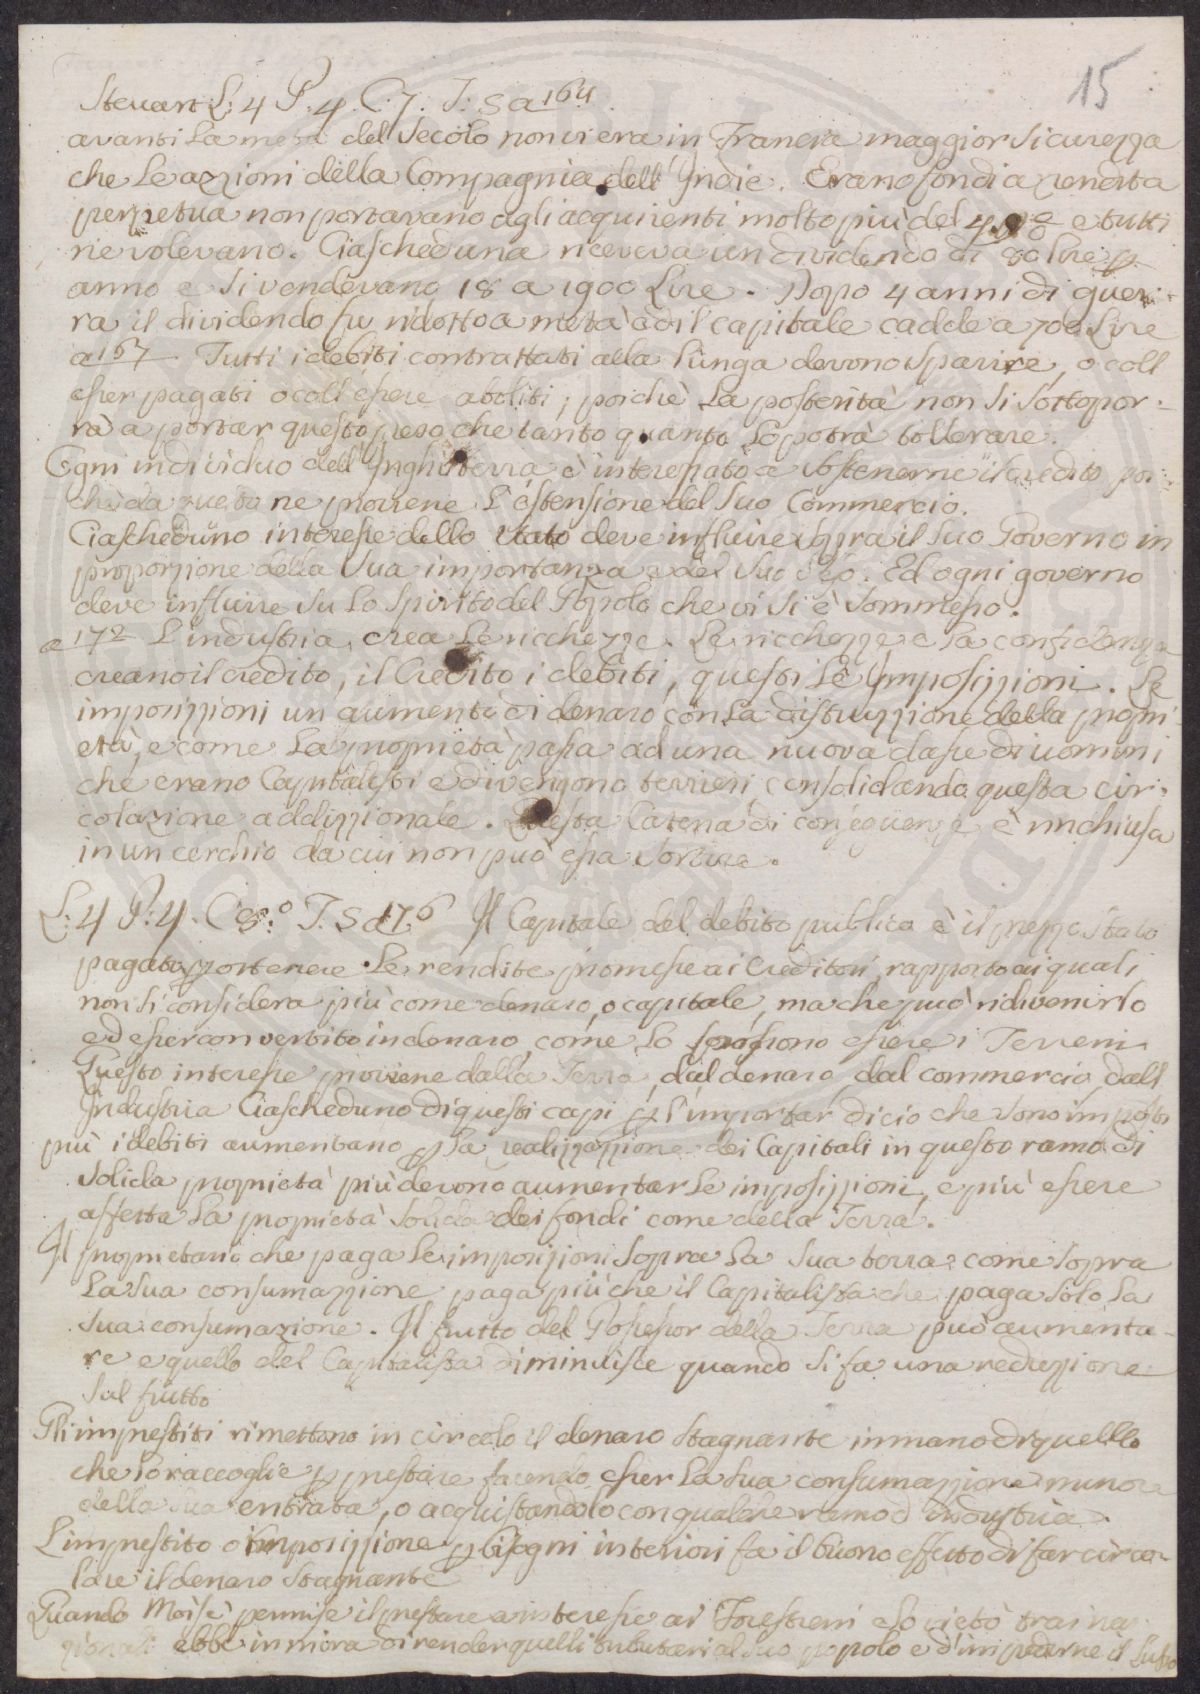 15
Steuart L: 4 P. 4. C. 7. T: 5 a 164
avanti la metà del secolo non vi era in Francia maggior sicurezza
che le azzioni della Compagnia dell' Indie. Erano fondi a rendita
perpetua non portavano agli acquirenti molto più del 4 e tutti
ne volevano. Ciascheduna riceveva un dividendo di 80 lire p
anno e si vendevano 18 a 1900 Lire. Dopo 4 anni di guer-
ra il dividendo fu ridotto a metà ed il capitale cadde a 700 Lire
a 167 Tutti i debiti contrattati alla lunga devono sparire, o coll
esser pagati o coll essere aboliti; poichè la posterità non si sottopor-
rà a portar questo peso che tanto quanto lo potrà tollerare.
Ogni individuo dell' Inghilterra è interessato a sostenerne il credito poi
chè da questo ne proviene l'estensione del suo Commercio.
Ciascheduno interesse dello stato deve influire sopra il suo Governo in
proporzione della sua importanza e del suo. Ed ogni governo
deve influire su lo spirito del Popolo che vi si è sommesso.
a 172 L'industria crea le ricchezze. Le ricchezze e la confidenza
creano il credito, il Credito i debiti, questi le Imposizzioni. Le
imposizzioni un aumento di denaro con la distruzzione della propri
età, e come la proprietà passa ad una nuova classe di uomini
che erano Capitalisti e divengono terrieri, consolidando questa cir-
colazione addizzionale. Questa Catena di conseguenze è rinchiusa
in un cerchio da cui non può essa sortire.
L: 4 P: 4. C 8.° T. 5 a 176 Il Capitale del debito publico è il prezzo stato
pagato p ottenere le rendite promesse ai Creditori, rapporto ai quali
non si considera più come denaro, o capitale, ma che può ridivenirlo
ed esser convertito in denaro come lo possono essere i Terreni
Questo interesse proviene dalla Terra, dal denaro, dal commercio, dall
Industria Ciascheduno di questi capi p l'importar di cio che sono imposti
più i debiti aumentano p la realizzazzione dei Capitali in questo ramo di
solida proprietà più devono aumentar le imposizzioni, e più essere
affetta la proprietà solida dei fondi come della Terra.
Il proprietario che paga le imposizzioni sopra la sua terra come sopra
la sua consumazzione paga più che il Capitalista che paga solo la
sua consumazione. Il frutto del Possessor della Terra può aumenta-
re e quello del Capitalista diminuisce quando si fa una reduzzione
sul frutto
Gli imprestiti rimettono in circolo il denaro stagnante in mano di quello
che lo raccoglie p prestare facendo esser la sua consumazzione minore
della sua entrata, o acquistandolo con qualche ramo d industria.
L'imprestito o imposizzione p bisogni interiori fa il buono effetto di far circo-
lare il denaro stagnante
Quando Moisè permise il prestare a interesse ai Forestieri e lo vietò tra i na
zionali ebbe in mira di render quelli tributari al suo popolo e d'impedirne il lusso